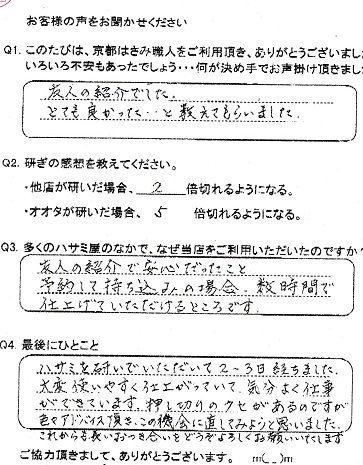 お客様の声をお聞かせください
Q1. このたびは、京都はさみ職人をご利用頂き、ありがとうございまし
いろいろ不安もあったでしょう・・・何が決め手でお声掛け頂きまし
友人の紹介でした.
とても良かった・・と教えてもらいました.
Q2. 研ぎの感想を教えてください。
・他店が研いだ場合、 2 倍切れるようになる。
・オオタが研いだ場合、 5 倍切れるようになる。
Q3. 多くのハサミ屋のなかで、なぜ当店をご利用いただいたのですか?
友人の紹介で安心だったこと
予約して持ち込みの場合、数時間で
仕上げていただけるところです.
Q4. 最後にひとこと
ハサミを研いでいただいて2〜3日経ちました.
大変使いやすく仕上がっていて、気分よく仕事
ができています. 押し切りのクセがあるのですが
色々アドバイス頂き、この機会に直してみようと思いました.
これからも長いおつき合いをどうぞよろしくお願いいたします
ご協力頂きまして、ありがとうございます。 m(_)m